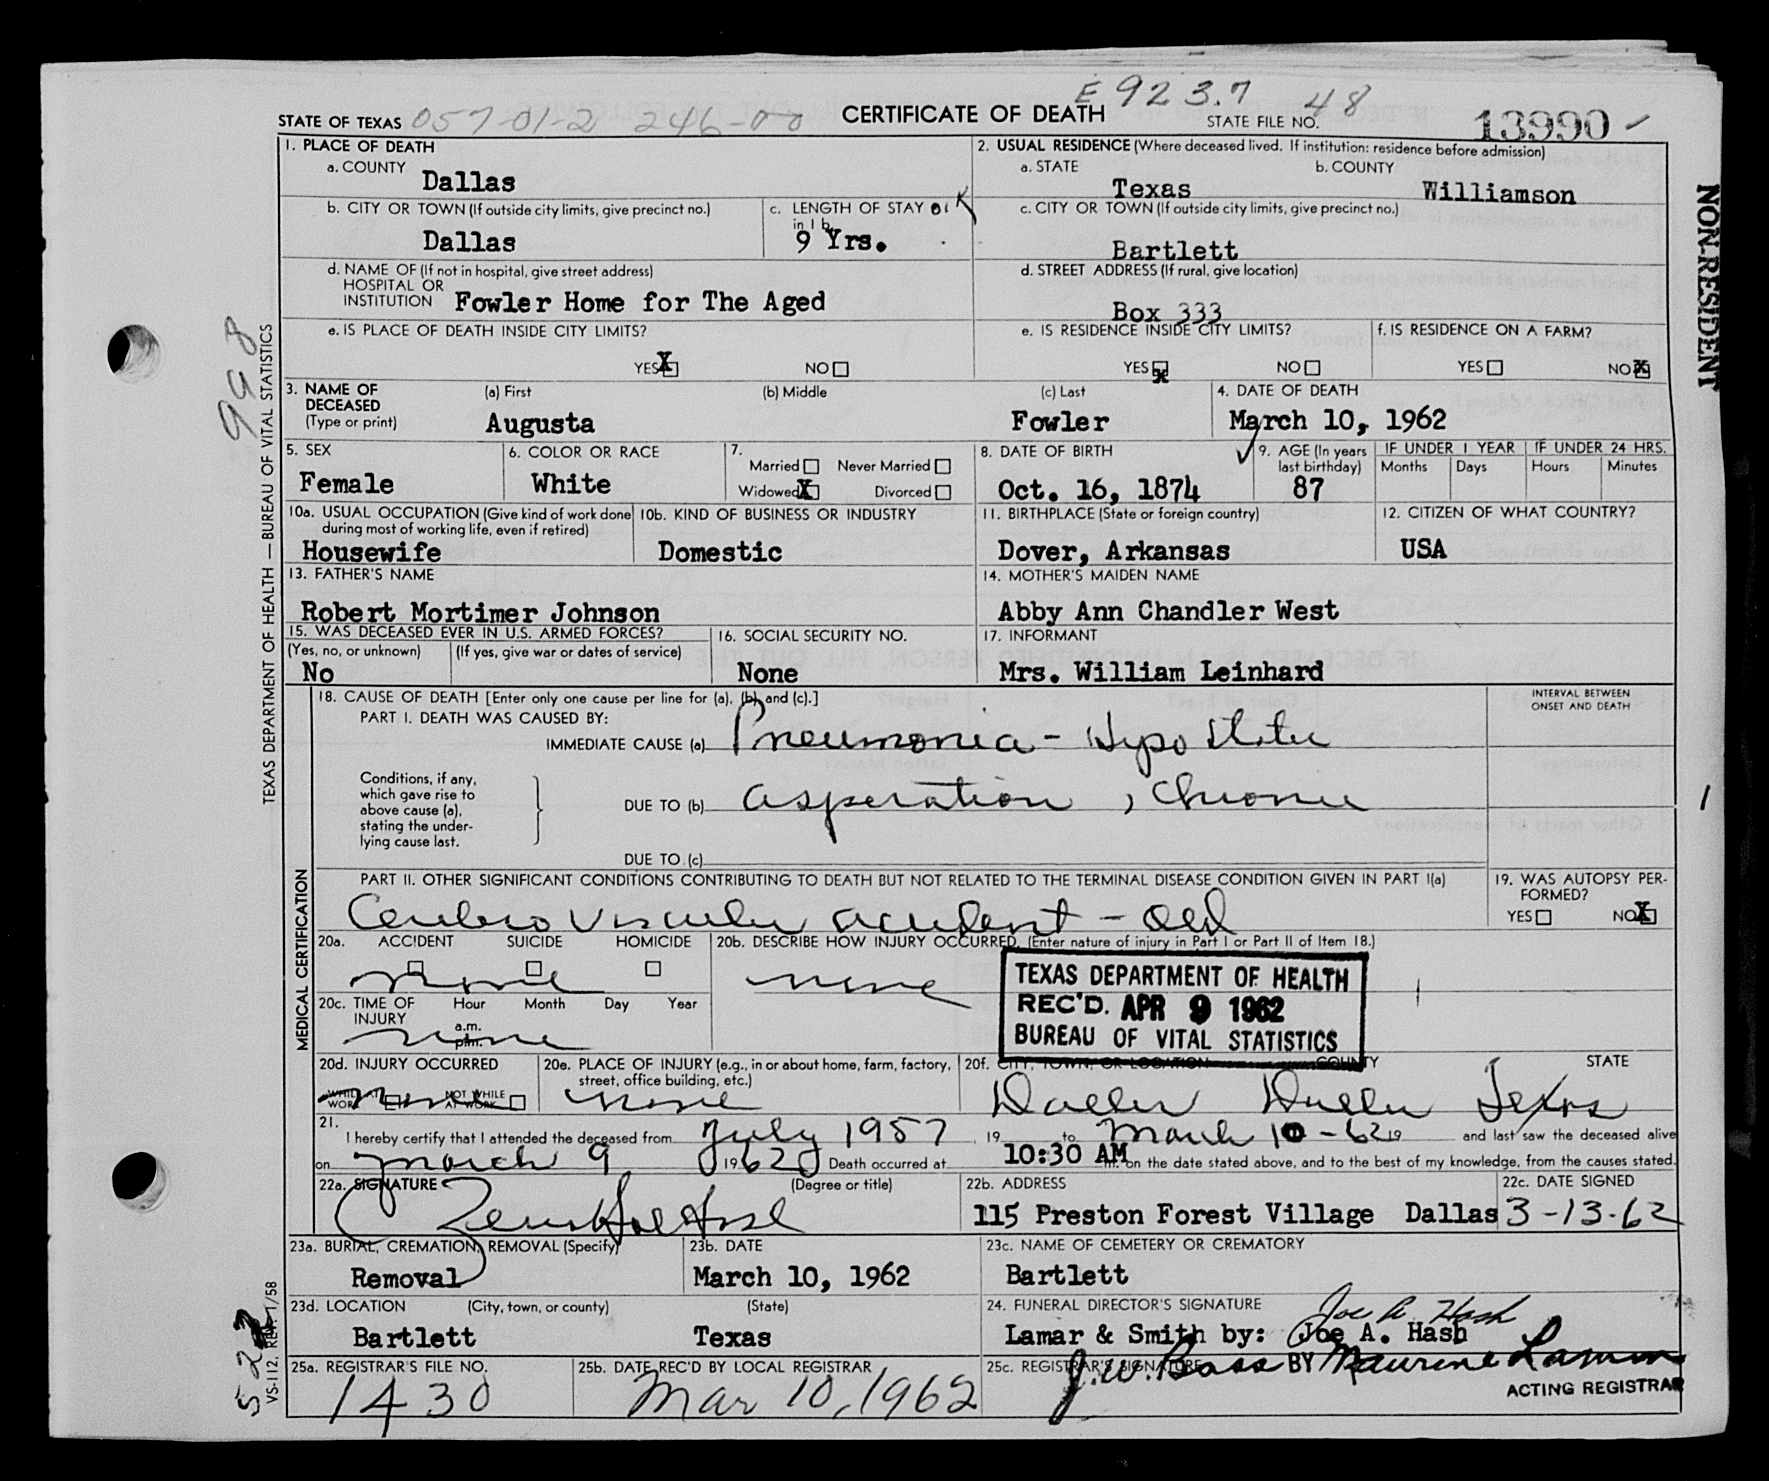 E 923.7 48
STATE OF TEXAS 057-01-2 246-00 CERTIFICATE OF DEATH STATE FILE NO. 13990
NON-RESIDENT
TEXAS DEPARTMENT OF HEALTH — BUREAU OF VITAL STATISTICS
998
1. PLACE OF DEATH
a. COUNTY Dallas
2. USUAL RESIDENCE (Where deceased lived. If institution: residence before admission)
a. STATE Texas b. COUNTY Williamson
b. CITY OR TOWN (If outside city limits, give precinct no.) Dallas
c. LENGTH OF STAY in 1 b. 9 Yrs.
c. CITY OR TOWN (If outside city limits, give precinct no.) Bartlett
d. NAME OF (If not in hospital, give street address)
HOSPITAL OR
INSTITUTION Fowler Home for The Aged
d. STREET ADDRESS (If rural, give location)
Box 333
e. IS PLACE OF DEATH INSIDE CITY LIMITS?
YES X NO
e. IS RESIDENCE INSIDE CITY LIMITS?
YES X NO
f. IS RESIDENCE ON A FARM?
YES NO X
3. NAME OF DECEASED (Type or print)
(a) First Augusta (b) Middle (c) Last Fowler
4. DATE OF DEATH
March 10, 1962
5. SEX
Female
6. COLOR OR RACE
White
7.
Married Never Married
Widowed X Divorced
8. DATE OF BIRTH
Oct. 16, 1874
9. AGE (In years last birthday)
87
IF UNDER 1 YEAR
Months Days
IF UNDER 24 HRS.
Hours Minutes
10a. USUAL OCCUPATION (Give kind of work done during most of working life, even if retired)
Housewife
10b. KIND OF BUSINESS OR INDUSTRY
Domestic
11. BIRTHPLACE (State or foreign country)
Dover, Arkansas
12. CITIZEN OF WHAT COUNTRY?
USA
13. FATHER'S NAME
Robert Mortimer Johnson
14. MOTHER'S MAIDEN NAME
Abby Ann Chandler West
15. WAS DECEASED EVER IN U.S. ARMED FORCES?
(Yes, no, or unknown) (If yes, give war or dates of service)
No
16. SOCIAL SECURITY NO.
None
17. INFORMANT
Mrs. William Leinhard
MEDICAL CERTIFICATION
18. CAUSE OF DEATH [Enter only one cause per line for (a), (b), and (c).]
INTERVAL BETWEEN ONSET AND DEATH
PART I. DEATH WAS CAUSED BY:
IMMEDIATE CAUSE (a) Pneumonia - Hypo static
Conditions, if any, which gave rise to above cause (a), stating the underlying cause last.
DUE TO (b) asperation, chronic
DUE TO (c)
PART II. OTHER SIGNIFICANT CONDITIONS CONTRIBUTING TO DEATH BUT NOT RELATED TO THE TERMINAL DISEASE CONDITION GIVEN IN PART I(a)
Cerebro Vascular accident - old
19. WAS AUTOPSY PERFORMED?
YES NO X
20a. ACCIDENT SUICIDE HOMICIDE
none
20b. DESCRIBE HOW INJURY OCCURRED. (Enter nature of injury in Part I or Part II of Item 18.)
none
TEXAS DEPARTMENT OF HEALTH
REC'D. APR 9 1962
BUREAU OF VITAL STATISTICS
20c. TIME OF INJURY Hour Month Day Year
a.m.
p.m.
none
20d. INJURY OCCURRED
WHILE AT WORK NOT WHILE AT WORK
none
20e. PLACE OF INJURY (e.g., in or about home, farm, factory, street, office building, etc.)
none
20f. CITY, TOWN, OR LOCATION COUNTY STATE
Dallas Dallas Texas
21.
I hereby certify that I attended the deceased from July 1957, 19 to March 10-62 19 and last saw the deceased alive
on March 9, 1962 Death occurred at 10:30 AM m. on the date stated above, and to the best of my knowledge, from the causes stated.
22a. SIGNATURE (Degree or title)
22b. ADDRESS
115 Preston Forest Village Dallas
22c. DATE SIGNED
3-13-62
23a. BURIAL, CREMATION, REMOVAL (Specify)
Removal
23b. DATE
March 10, 1962
23c. NAME OF CEMETERY OR CREMATORY
Bartlett
23d. LOCATION (City, town, or county) (State)
Bartlett Texas
24. FUNERAL DIRECTOR'S SIGNATURE
Joe A. Hash
Lamar & Smith by: Joe A. Hash
25a. REGISTRAR'S FILE NO.
1430
25b. DATE REC'D BY LOCAL REGISTRAR
Mar 10, 1962
25c. REGISTRAR'S SIGNATURE
J. W. Bass BY Maurine
ACTING REGISTRAR
VS-112. REV. 1/58